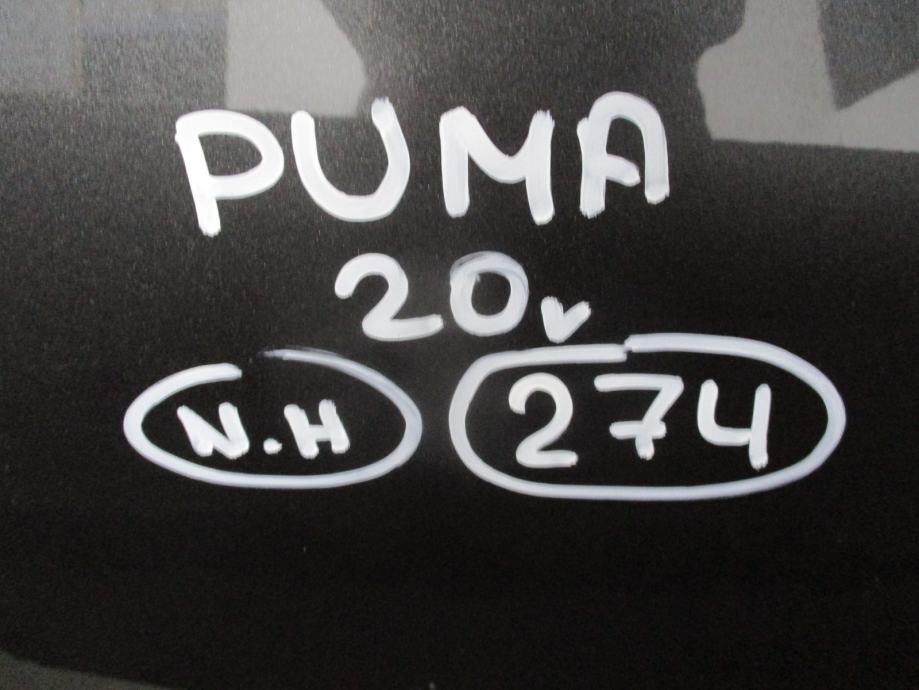 PUMA
20v
N.H 274